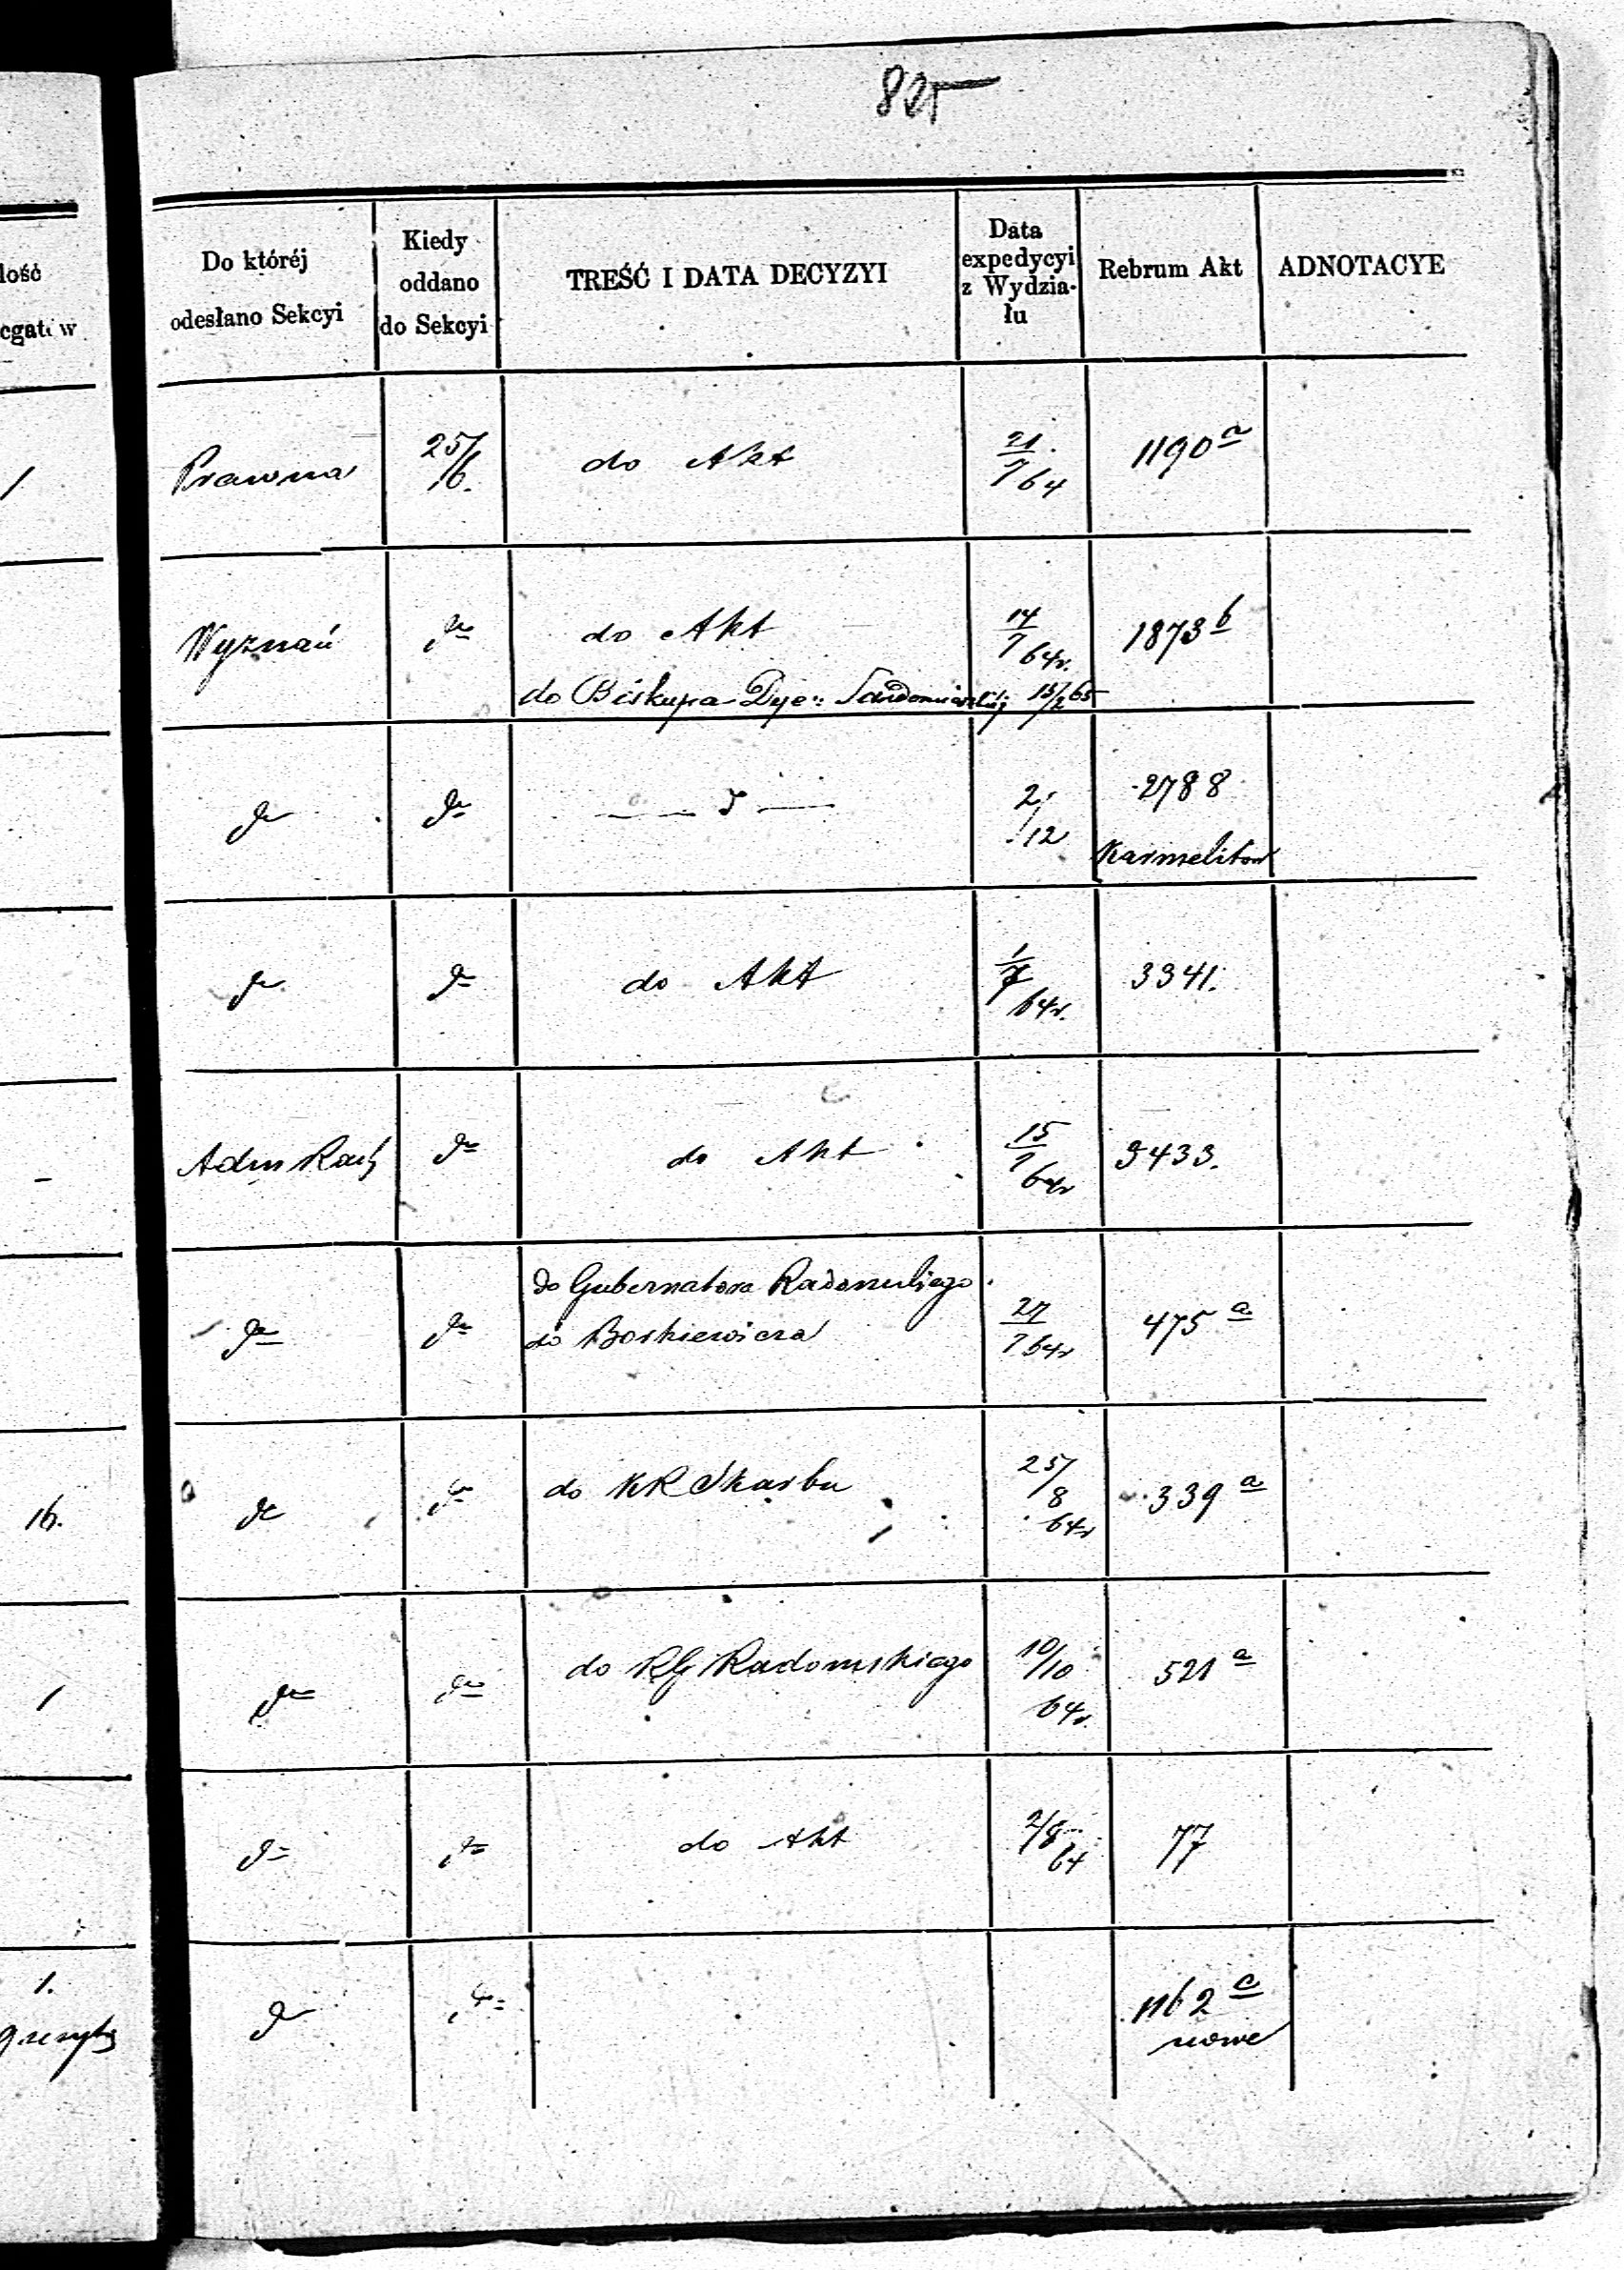 825
lość
Do któréj
odesłano Sekcyi
Kiedy
oddano
do Sekcyi
TREŚĆ I DATA DECYZYI
Data
expedycyi
z Wydzia-
łu
Rebrum Akt
ADNOTACYE
1 Prawna 25/6. do Akt 21/7 64 1190 a
Wyznań do do Akt 14/7 64r. 1873 b
do Biskupa Dye: Sandomierskiéj 15/2 65
do do 2/12 2788
Karmelitow
do do do Akt 1/7 64r. 3341.
Adm Rach do do Akt 15/7 64r 3433.
do Gubernatora Radomskiego
do do do Borkiewicza 27/7 64r 475 a
16. do do do KR Skarbu 25/8 64r 339 a
1 do do do RG Radomskiego 10/10 64r. 521 a
do do do Akt 2/8 64 77
1.
do do 1162 c
nowe